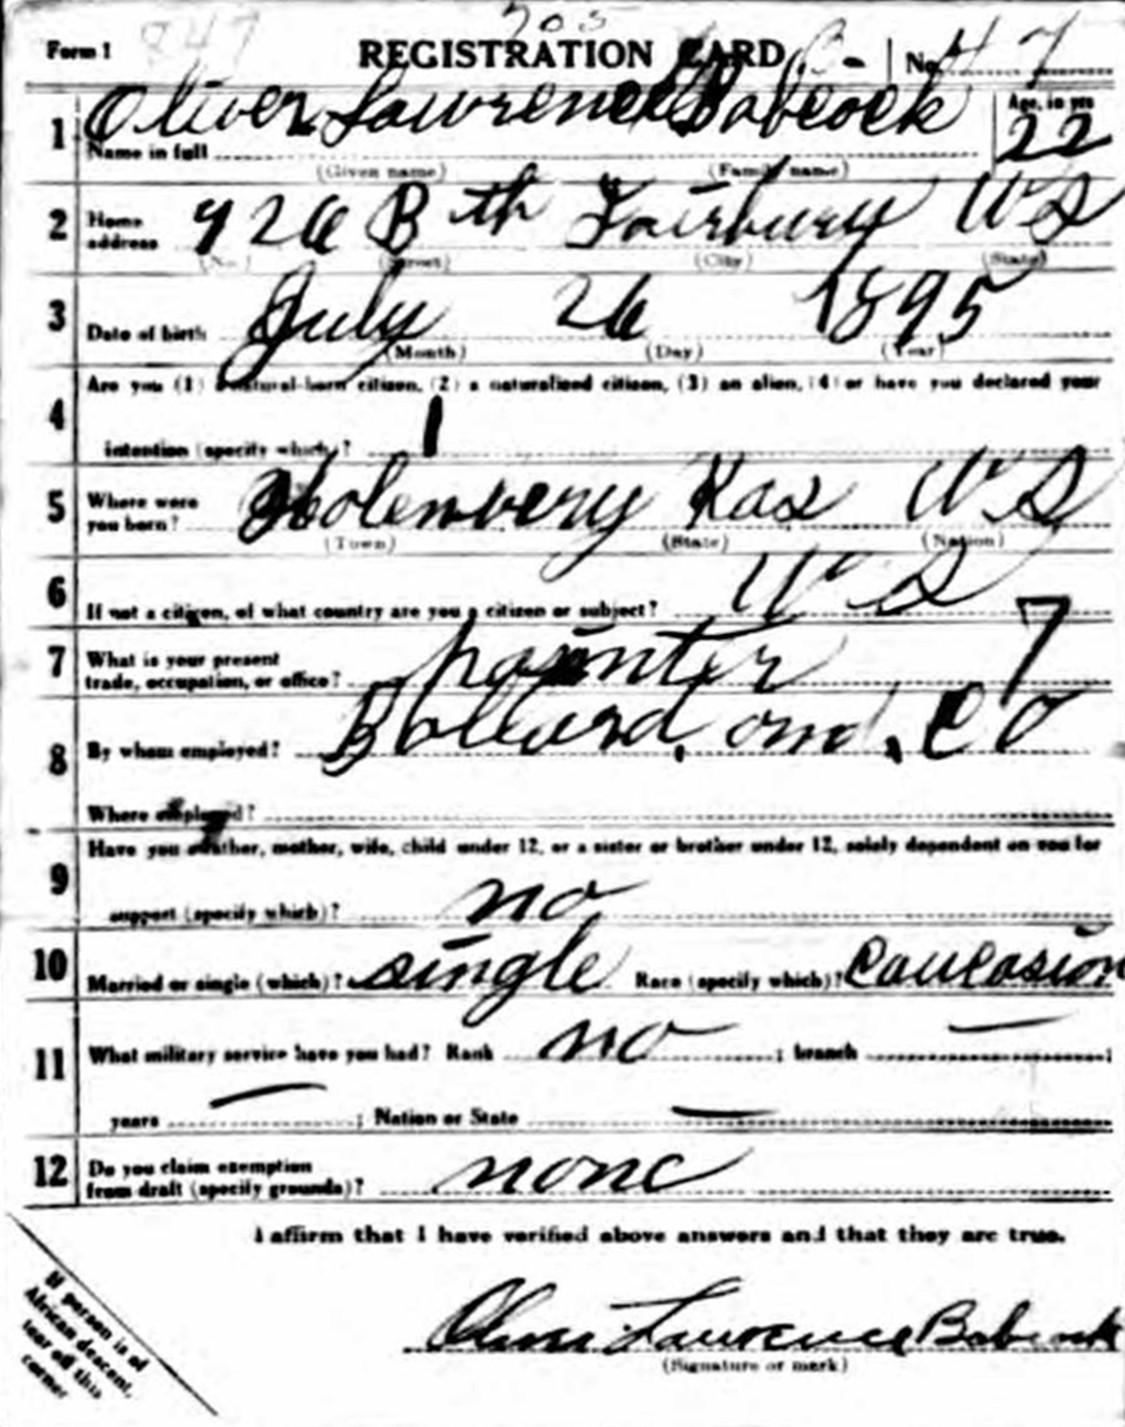 705
Form 1 847 REGISTRATION CARD No. 47
1 Name in full Oliver Lawrence Babcock Age, in yrs 22
(Given name) (Family name)
2 Home address 926 B th Fairbury US
(No.) (Street) (City) (State)
3 Date of birth July 26 1895
(Month) (Day) (Year)
Are you (1) a natural-born citizen, (2) a naturalized citizen, (3) an alien, (4) or have you declared your
4 intention (specify which)? 1
5 Where were you born? Holenberg Kas US
(Town) (State) (Nation)
6 If not a citizen, of what country are you a citizen or subject? US
7 What is your present trade, occupation, or office? painter 7
8 By whom employed? Bollard, and, Co
Where employed?
Have you a father, mother, wife, child under 12, or a sister or brother under 12, solely dependent on you for
9 support (specify which)? no
10 Married or single (which)? single Race (specify which)? Caucasion
11 What military service have you had? Rank no ; branch — ;
years — ; Nation or State —
12 Do you claim exemption from draft (specify grounds)? none
I affirm that I have verified above answers and that they are true.
Oliver Lawrence Babcock
(Signature or mark)
If person is of
African descent,
tear off this
corner